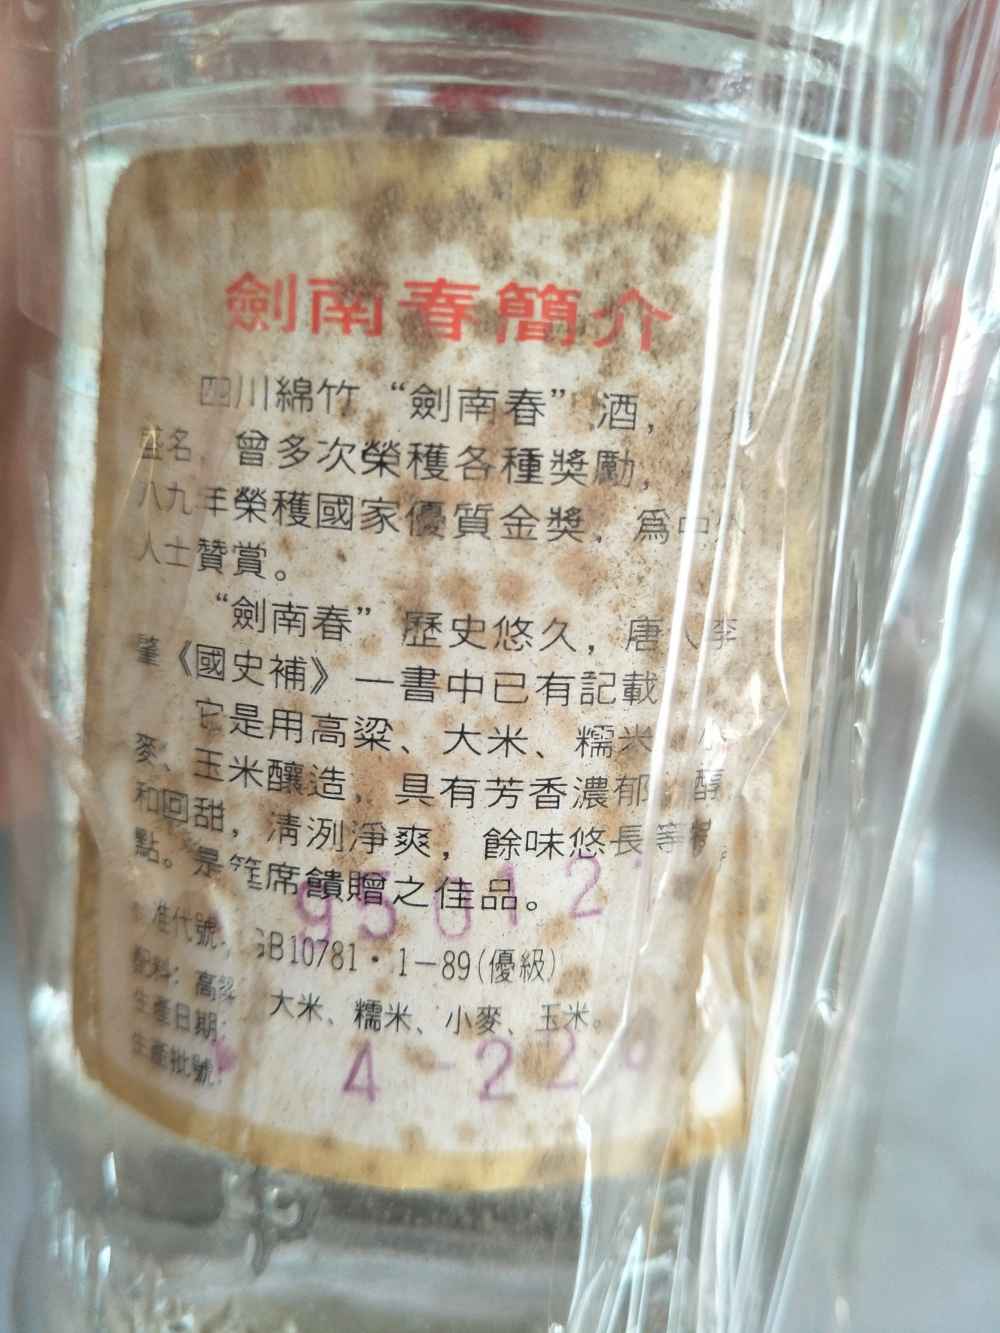 劍南春簡介
四川綿竹“劍南春”酒，
名，曾多次榮獲各種獎勵，
八九年榮獲國家優質金獎，爲中外
人士贊賞。
“劍南春”歷史悠久，唐人李
肇《國史補》一書中已有記載
它是用高粱、大米、糯米、小
麥、玉米釀造，具有芳香濃郁，醇
和回甜，清洌淨爽，餘味悠長等特
點。是筵席饋贈之佳品。
95012
准代號：GB10781·1－89(優級)
配料：高粱、大米、糯米、小麥、玉米。
生產日期：
生產批號：4-22